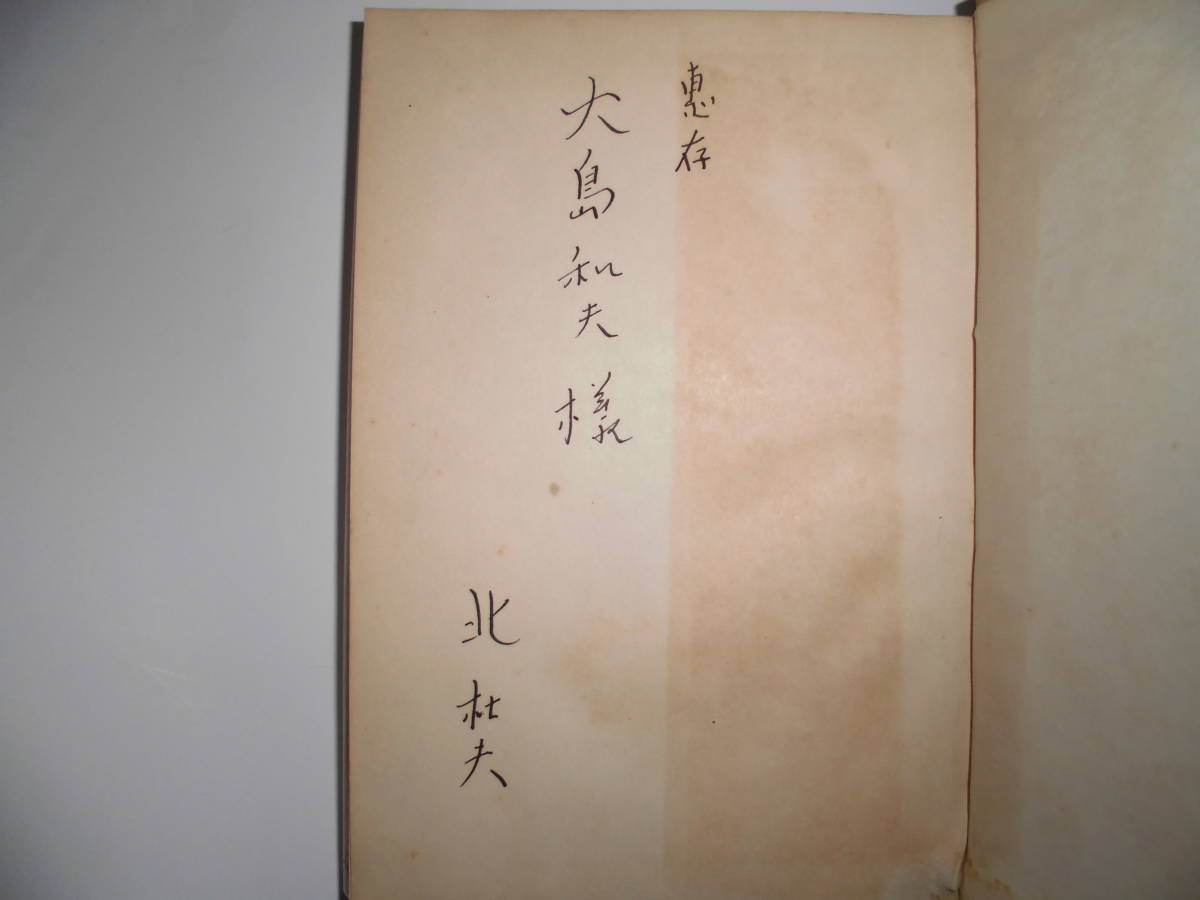 恵存
大島和夫様
北杜夫